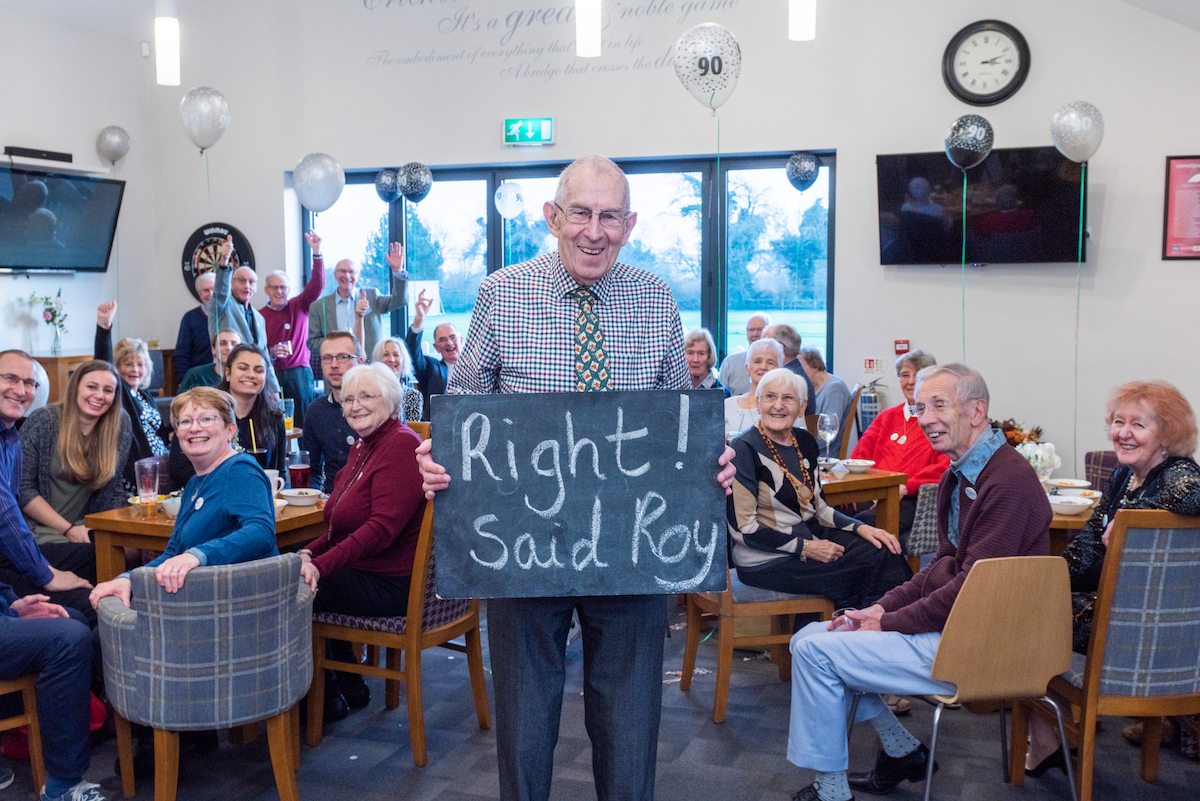 It's a great & noble game
The embodiment of everything that in life
A bridge that crosses the
90
90
90
Right!
Said Roy